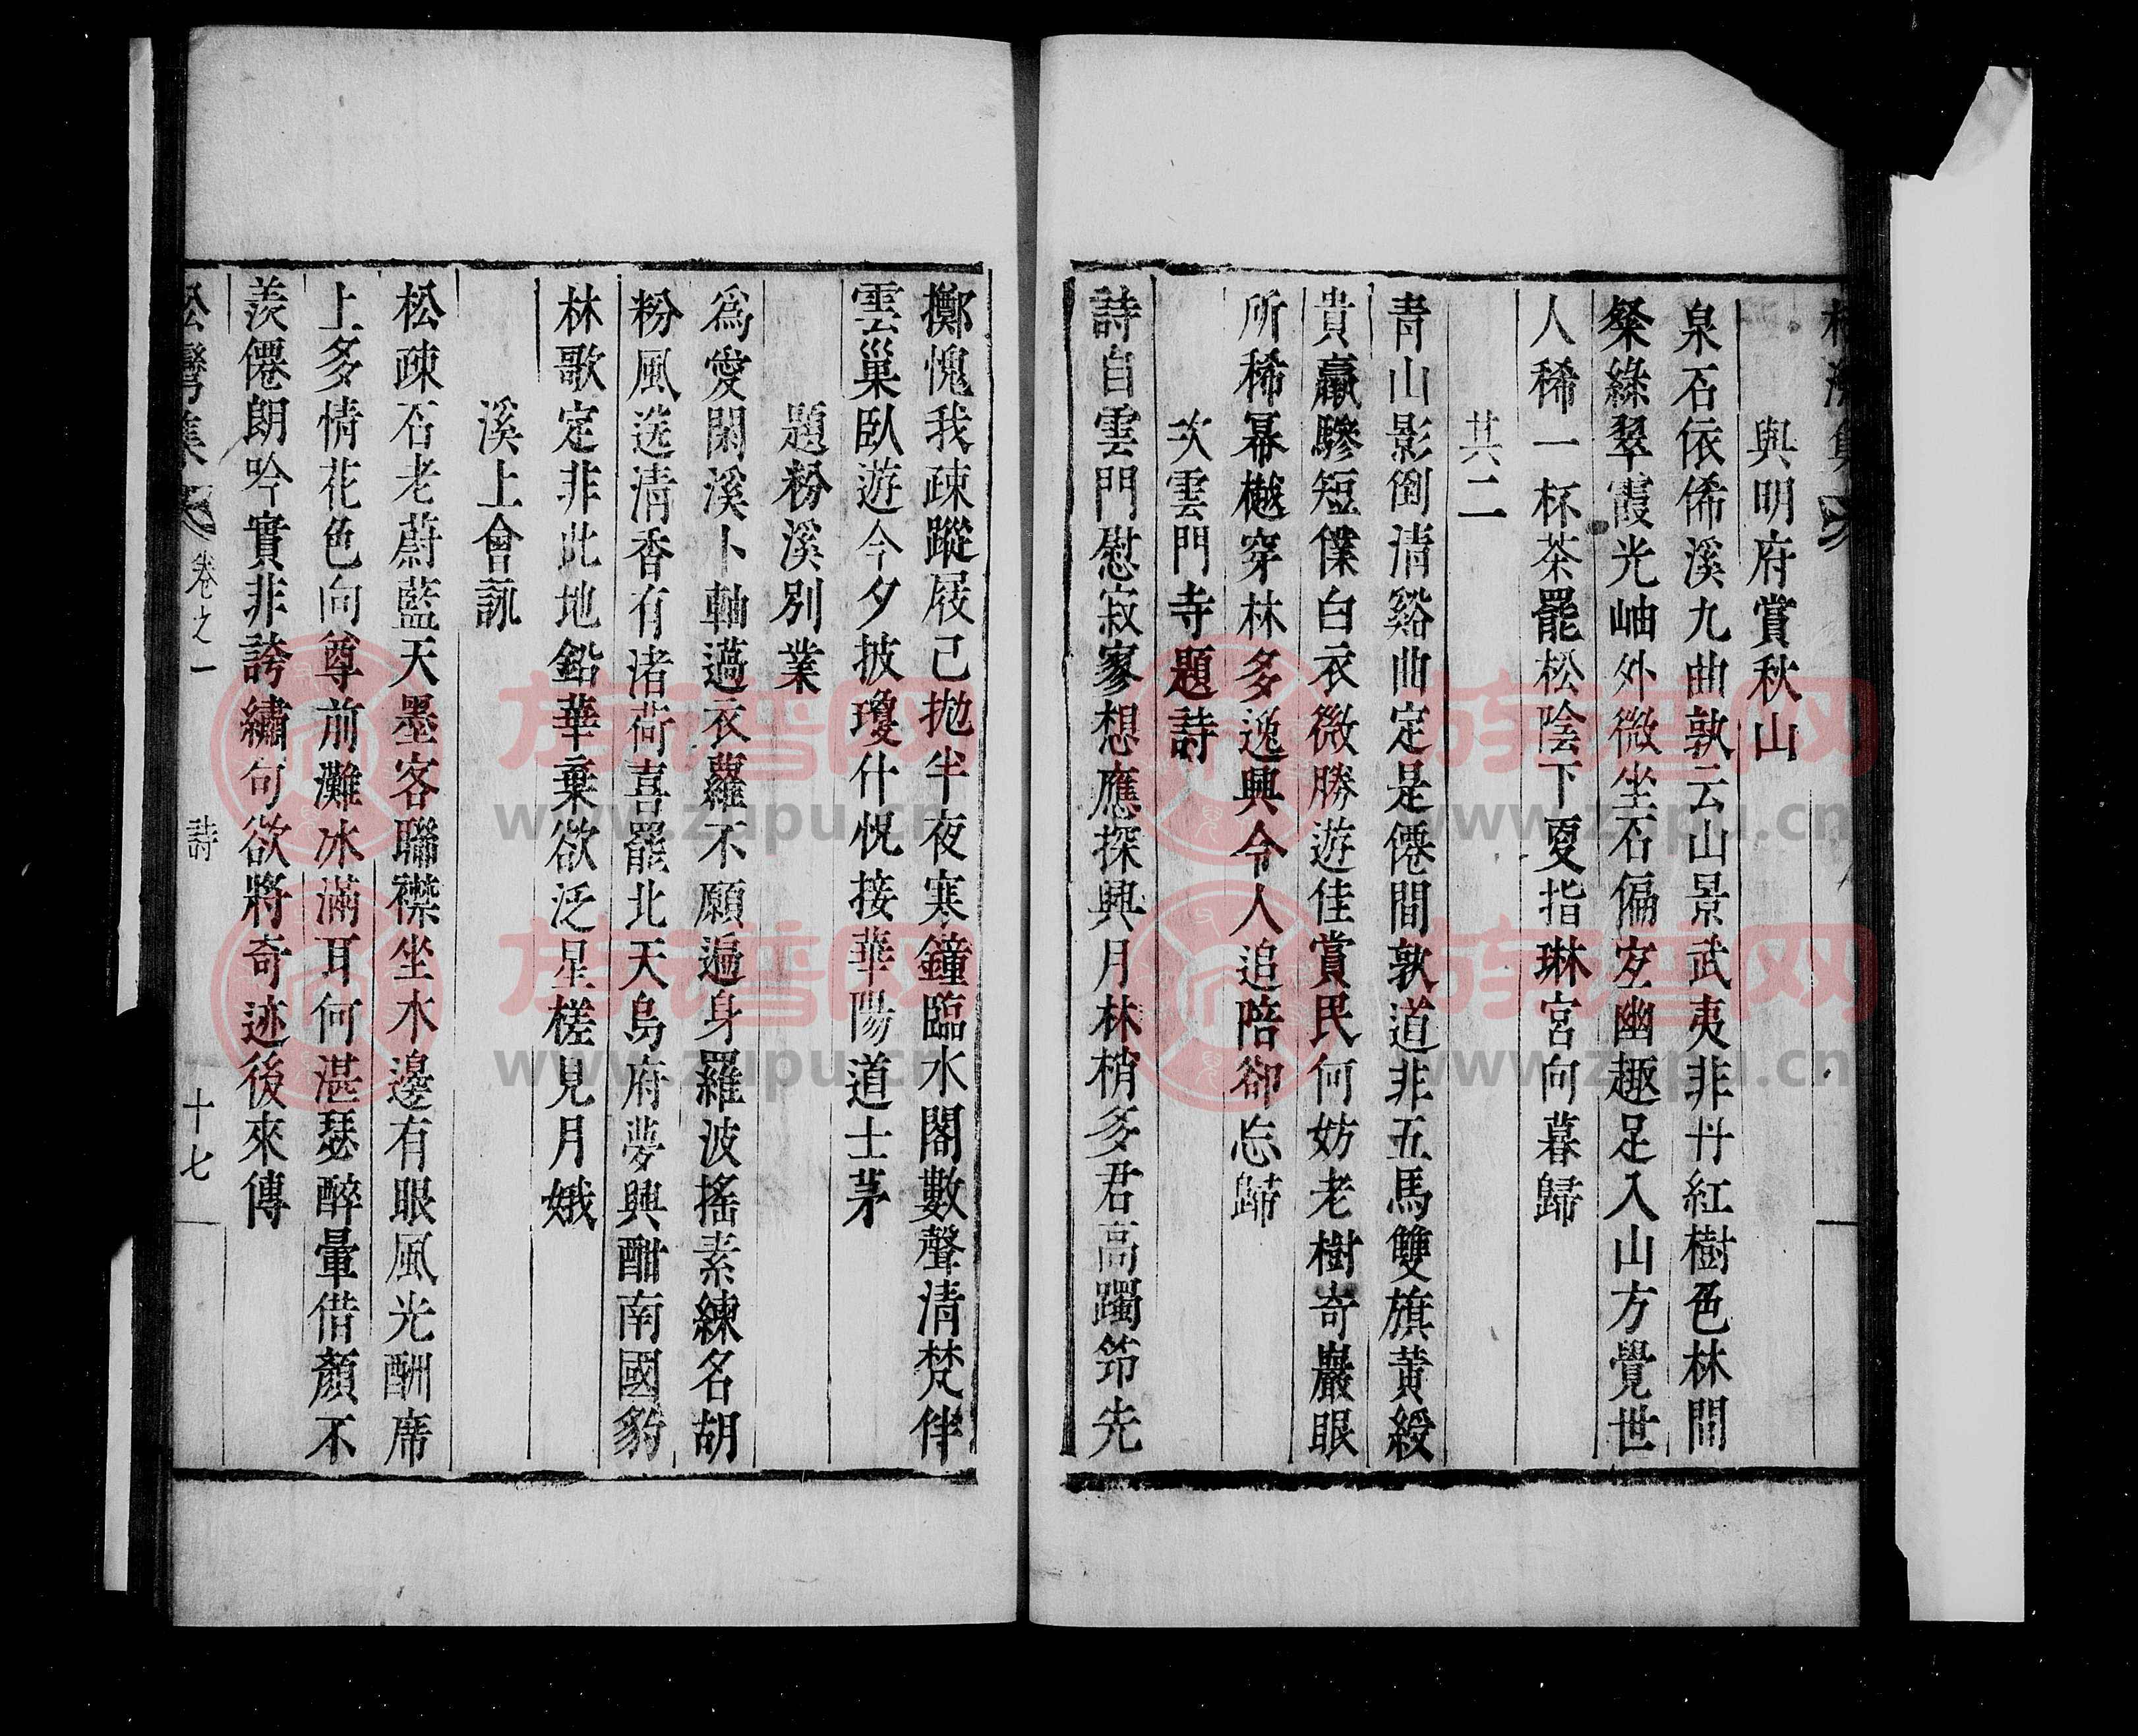 與明府賞秋山
泉石依俙溪九曲孰云山景武夷非丹紅樹色林間
粲綠翠霞光岫外微坐石偏宐幽趣足入山方覺世
人稀一杯茶罷松陰下夏指琳宮向暮歸
其二
青山影倒清谿曲定是僊間孰道非五馬雙旗黃綬
貴羸驂短僕白衣微勝遊佳賞民何妨老樹奇巖眼
所稀冪樾穿林多逸興令人追陪卻忘歸
次雲門寺題詩
詩自雲門慰寂寥想應探興月林梢多君高躅筇先
擲愧我疎蹤屐已拋半夜寒鐘臨水閣數聲清梵伴
雲巢臥遊今夕披瓊什怳接華陽道士茅
題粉溪別業
爲愛閑溪卜軸薖衣蘿不願遍身羅波搖素練名胡
粉風送清香有渚荷喜罷北天烏府夢興酣南國豹
林歌定非此地鉛華棄欲泛星槎見月娥
溪上會詠
松疎石老蔚藍天墨客聯襟坐水邊有眼風光酬席
上多情花色向尊前灘冰滿耳何湛瑟醉暈借顏不
羨僊朗吟實非誇繡句欲將奇迹後來傳
松灣集 卷之一 詩 十七
族譜网
www.zupu.cn
族譜网
www.zupu.cn
族譜网
www.zupu.cn
族譜网
www.zupu.cn